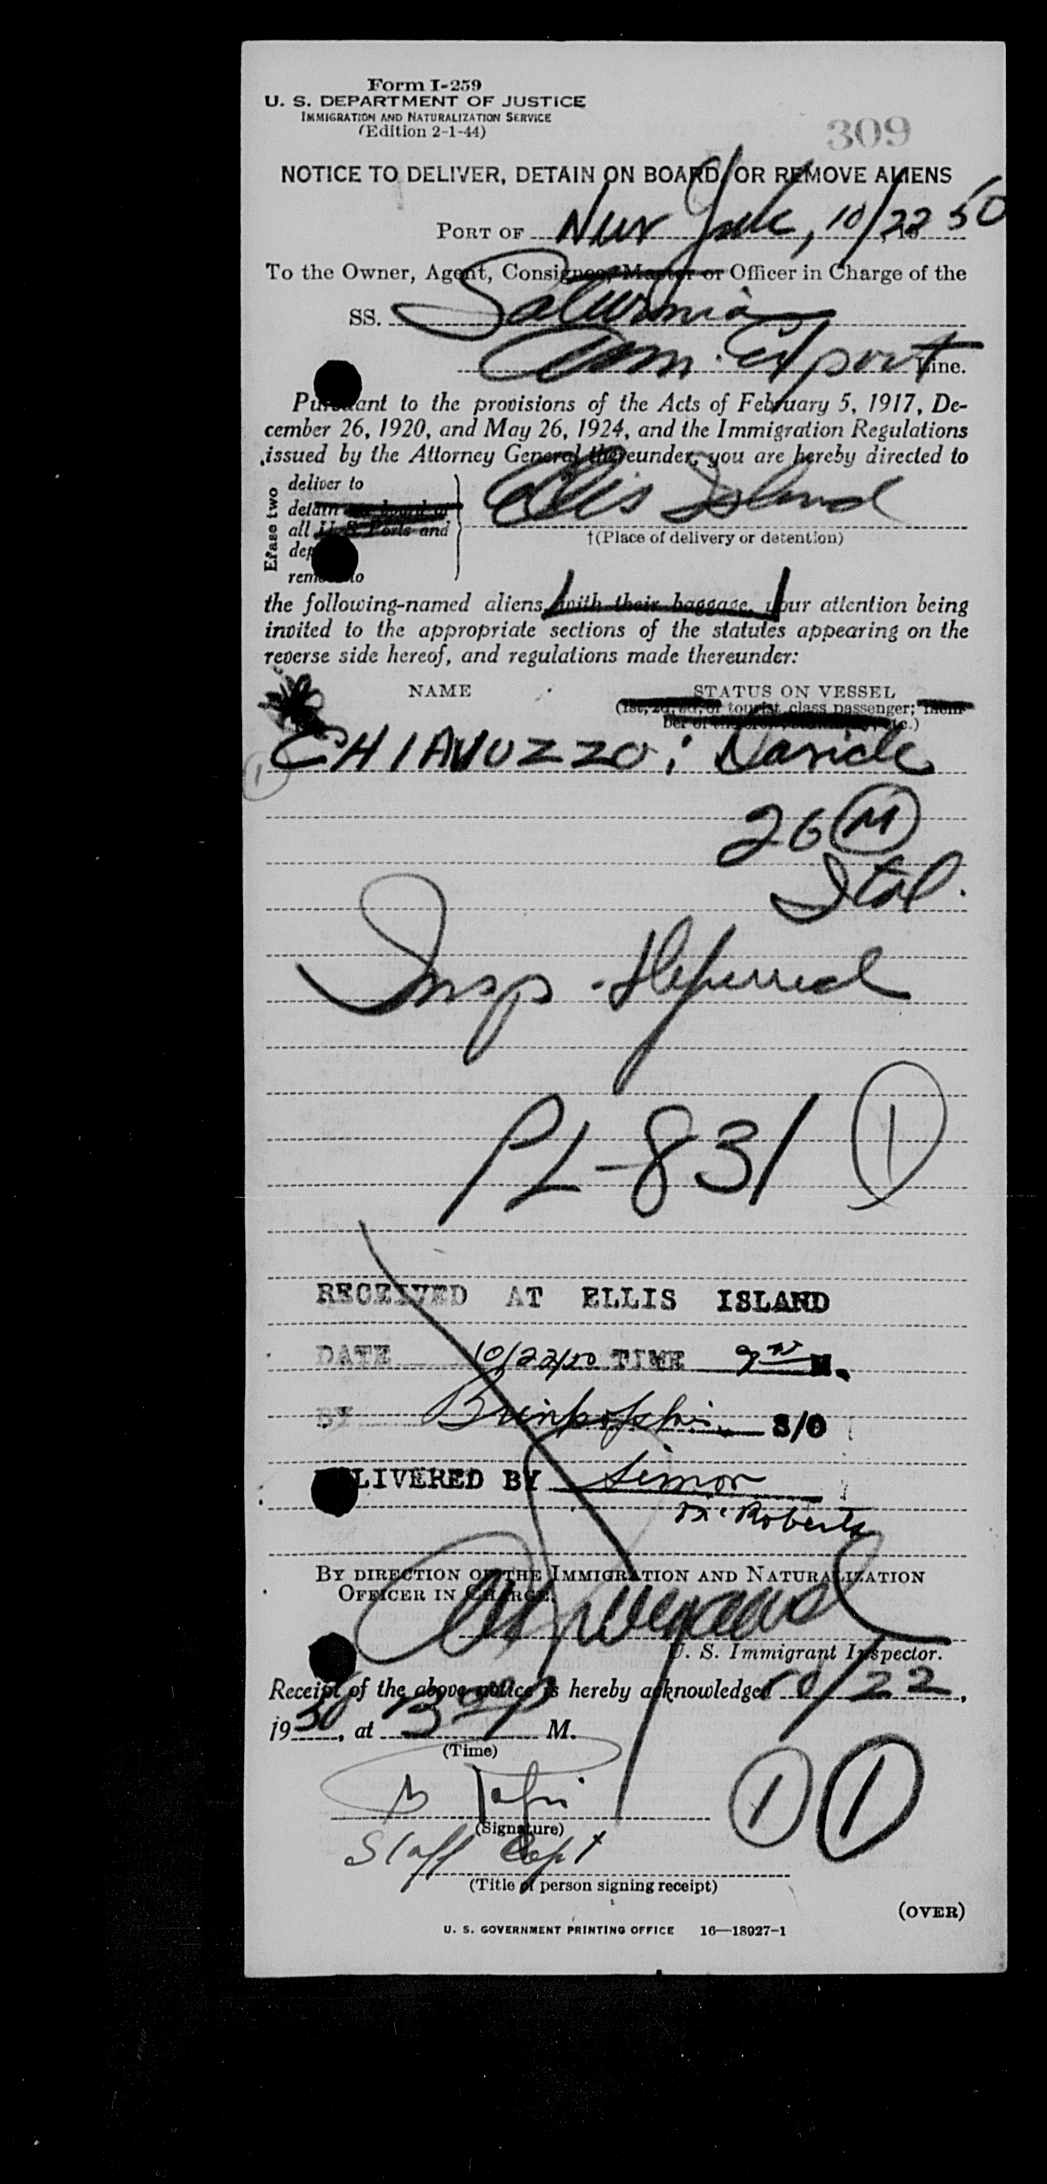 Form I-259
U. S. DEPARTMENT OF JUSTICE
IMMIGRATION AND NATURALIZATION SERVICE
(Edition 2-1-44)
309
NOTICE TO DELIVER, DETAIN ON BOARD, OR REMOVE ALIENS
PORT OF New York, 10/22 50
To the Owner, Agent, Consignee, Master or Officer in Charge of the
SS. Saturnia
Am. Export Line.
Pursuant to the provisions of the Acts of February 5, 1917, De-
cember 26, 1920, and May 26, 1924, and the Immigration Regulations
issued by the Attorney General thereunder, you are hereby directed to
Erase two
deliver to
detain on board at
all U S Ports and
remove to
Ellis Island
†(Place of delivery or detention)
the following-named aliens, with their baggage, your attention being
invited to the appropriate sections of the statutes appearing on the
reverse side hereof, and regulations made thereunder:
NAME STATUS ON VESSEL
(1st, 2d, 3d, or tourist class passenger; mem-
ber of etc.)
1 CHIAVUZZO; Davide
26 M
Ital.
Insp. deferred
PL-831 1
RECEIVED AT ELLIS ISLAND
DATE 10/22/50 TIME M.
BY S/O
DELIVERED BY Simor
McRoberts
BY DIRECTION OF THE IMMIGRATION AND NATURALIZATION
OFFICER IN CHARGE.
U. S. Immigrant Inspector.
Receipt of the above notice is hereby acknowledged 10/22,
1950, at M.
(Time)
1 1
(Signature)
Staff Capt
(Title of person signing receipt)
(OVER)
U. S. GOVERNMENT PRINTING OFFICE 16—18927-1